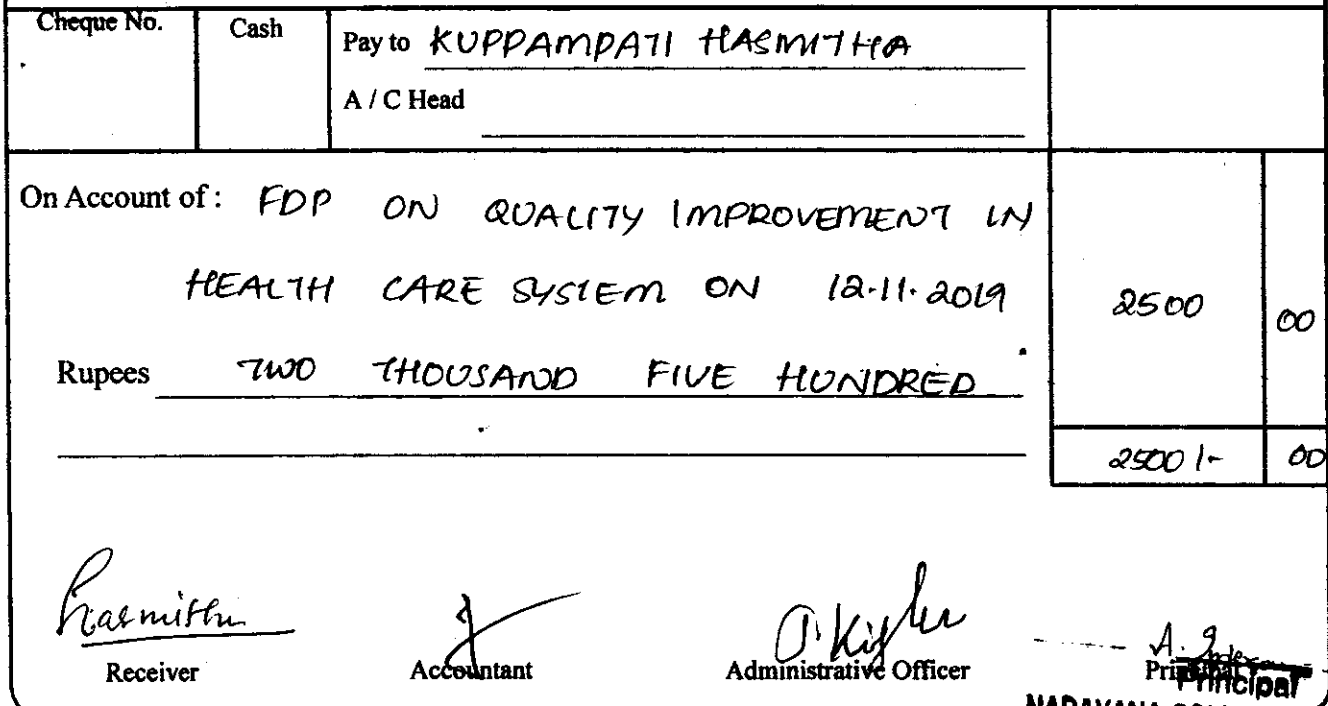 Cheque No. Cash Pay to KUPPAMPATI HASMITHA
A / C Head
On Account of : FDP ON QUALITY IMPROVEMENT IN
HEALTH CARE SYSTEM ON 12.11.2019 2500 00
Rupees TWO THOUSAND FIVE HUNDRED
2500/- 00
Hasmitha
Receiver Accountant Administrative Officer Principal
Principal